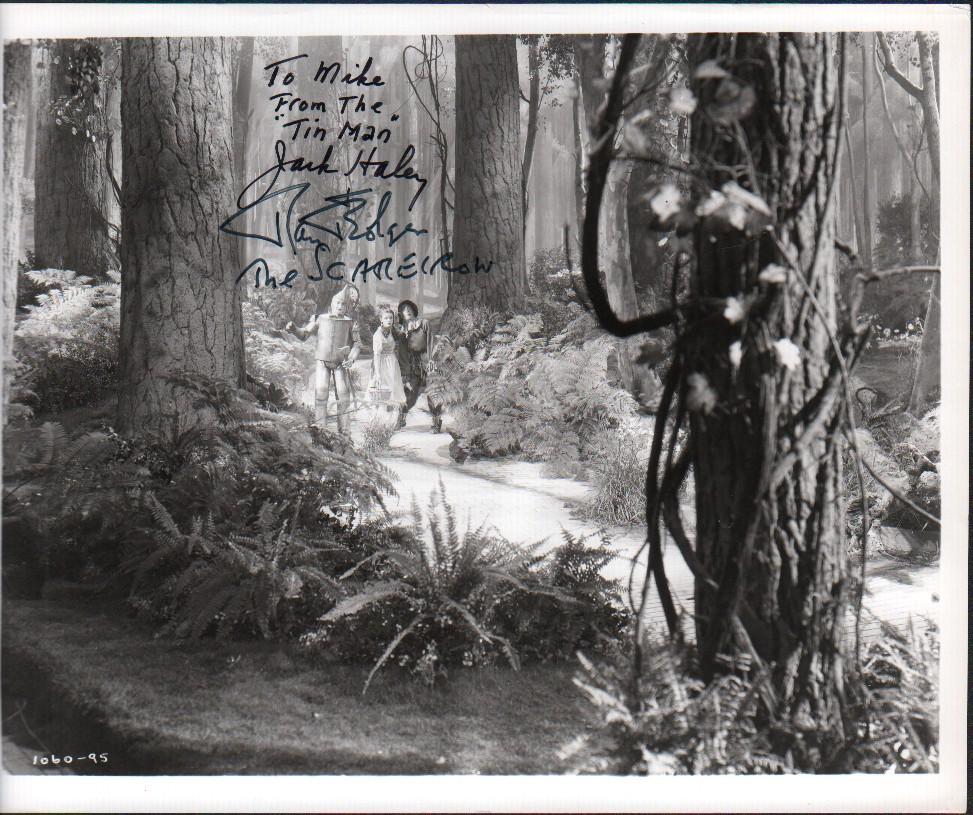 To Mike
From The
"Tin Man"
Jack Haley
Ray Bolger
The SCARECROW
1060-95